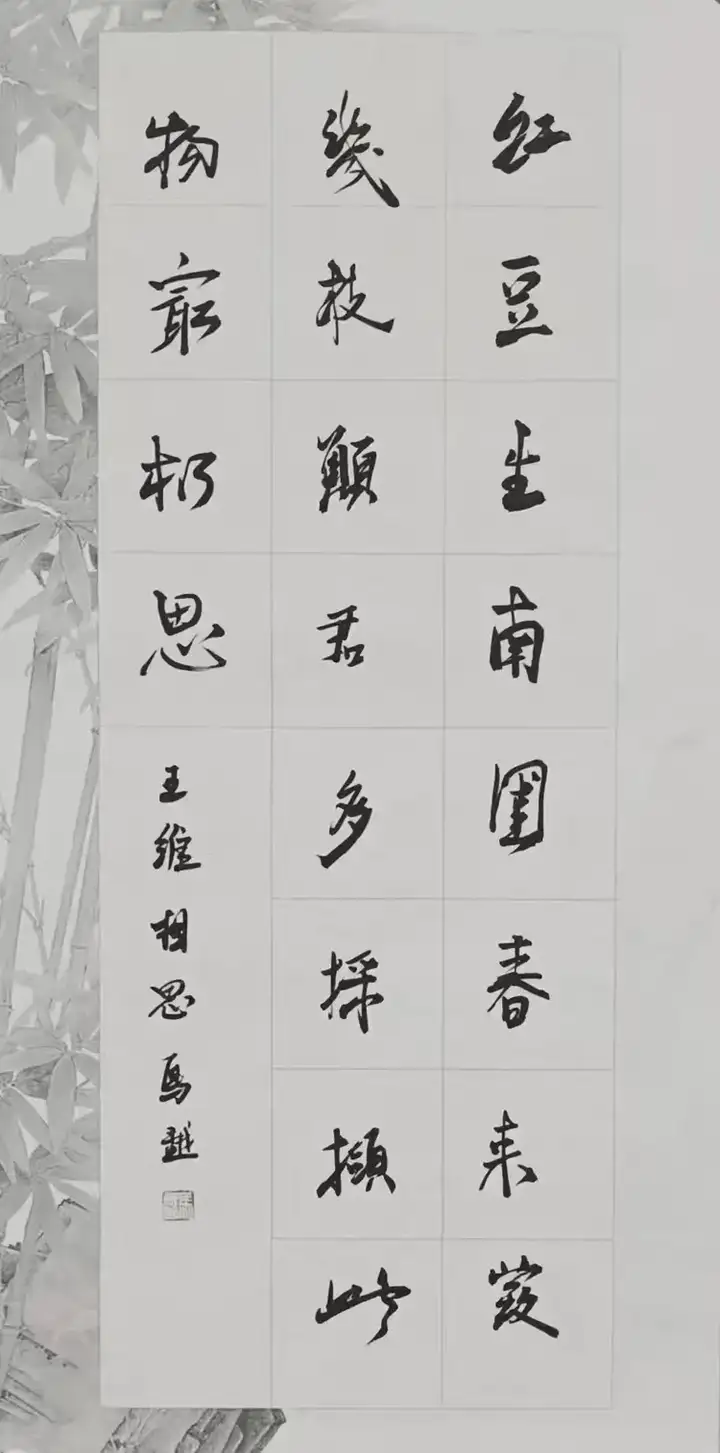 紅豆生南國春来發
幾枝願君多採擷此
物最相思
王維相思馬越